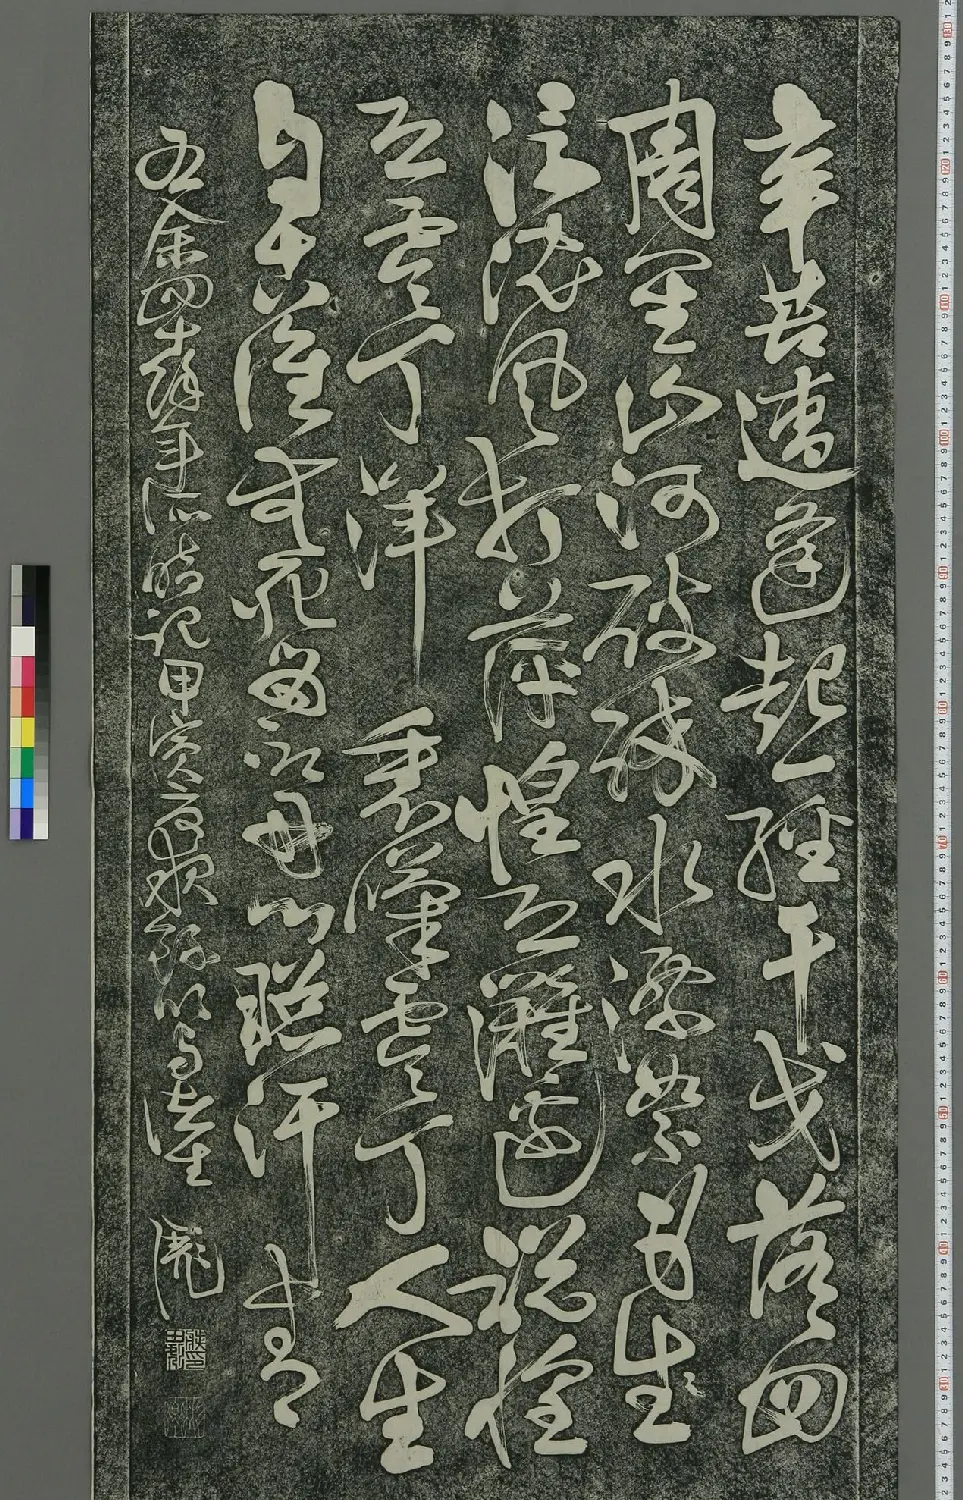 辛苦遭逢起一經干戈落〻四
周星山河破碎水漂絮身世
浮沈風打萍惶恐灘邊說惶
恐零丁洋裏歎零丁人生
自古誰無死留取丹心照汗青
右余四年所時記甲寅